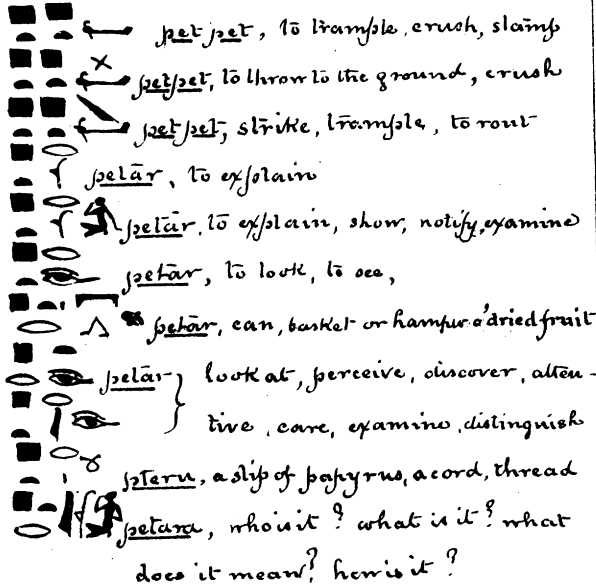 petpet, to trample, crush, stamp
petpet, to throw to the ground, crush
petpet, strike, trample, to rout
petār, to explain
petār, to explain, show, notify, examine
petār, to look, to see,
petār, can, basket or hamper o' dried fruit
petār } look at, perceive, discover, atten-
tive, care, examine, distinguish
pteru, a slip of papyrus, a cord, thread
petara, who is it? what is it? what
does it mean? how is it?